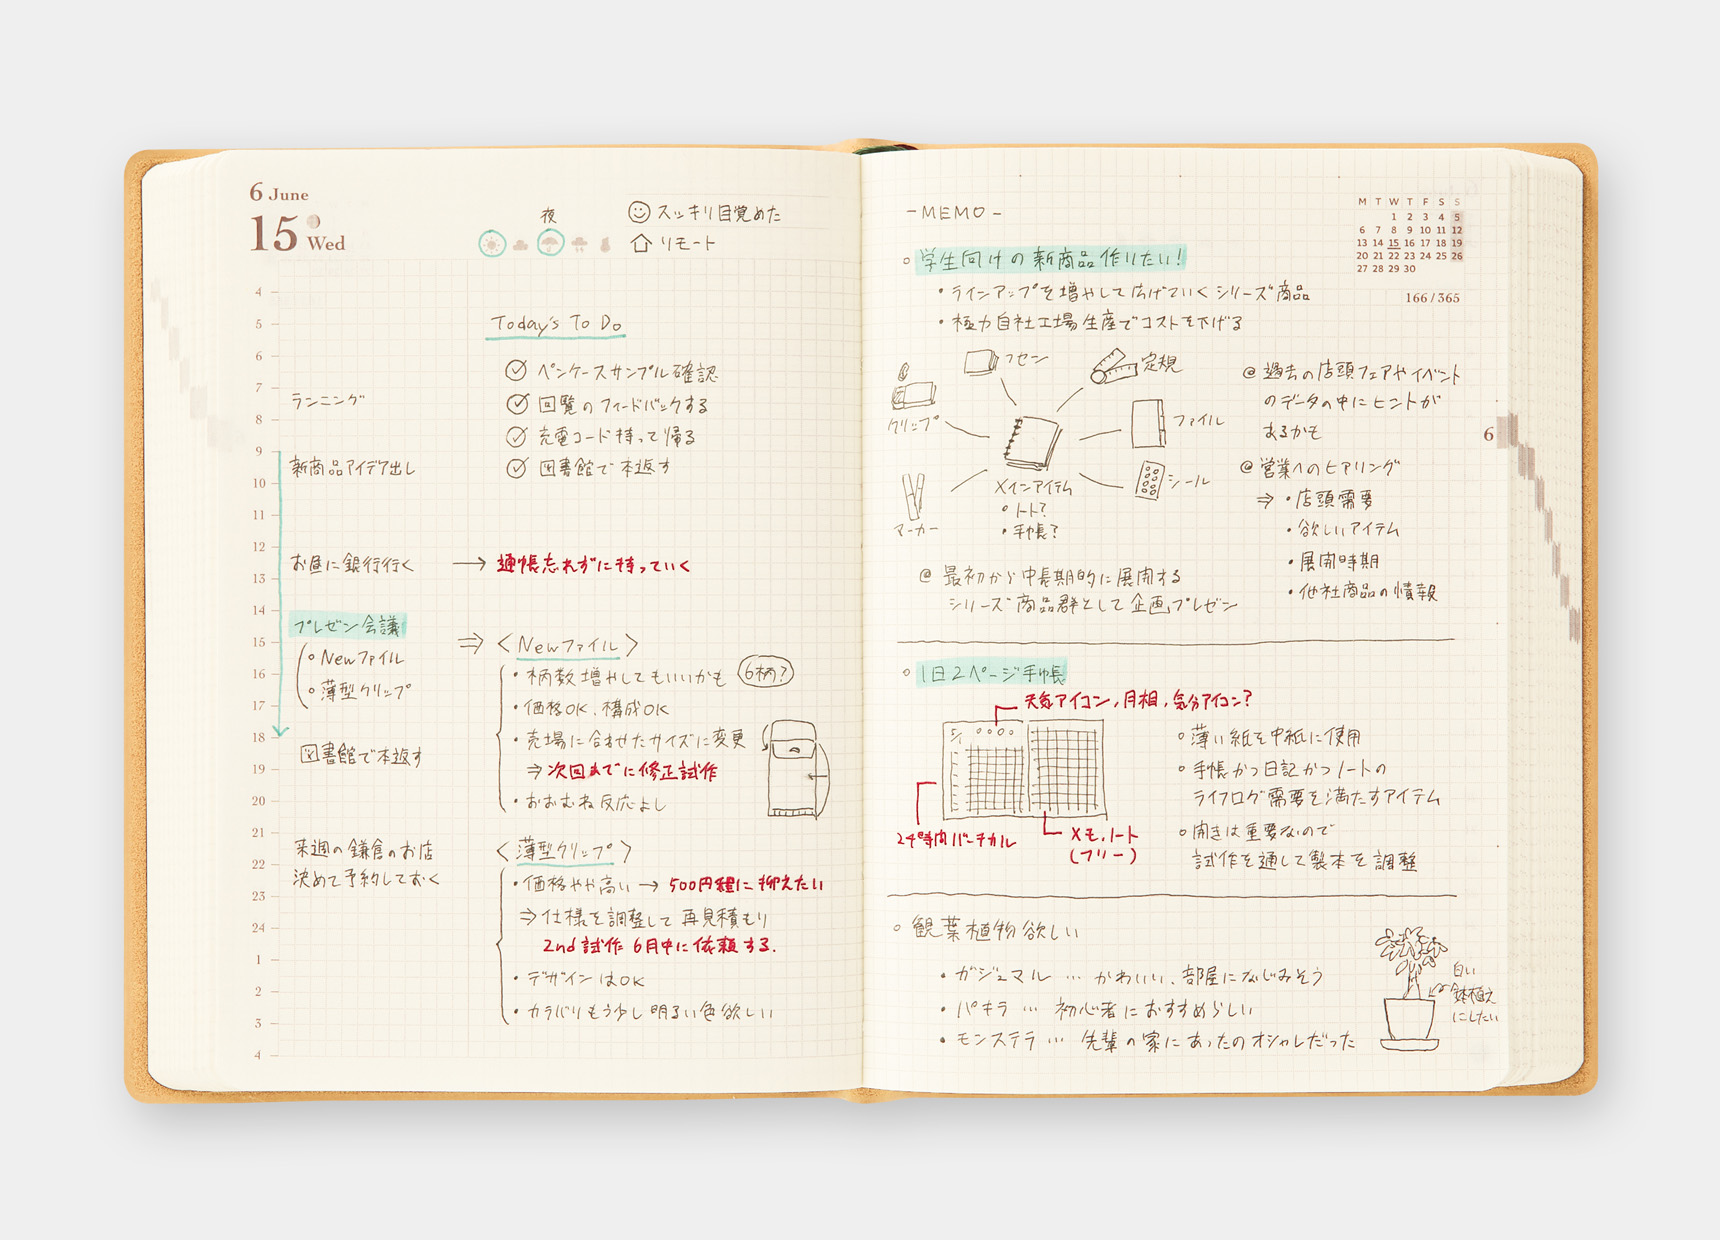 6 June
15 Wed
夜
スッキリ目覚めた
リモート
4
5
6
7
8
9
10
11
12
13
14
15
16
17
18
19
20
21
22
23
24
1
2
3
4
ランニング
新商品アイデア出し
お昼に銀行行く → 通帳忘れずに持っていく
プレゼン会議
・Newファイル
・薄型クリップ
図書館で本返す
来週の鎌倉のお店
決めて予約しておく
Today's To Do
ペンケースサンプル確認
回覧のフィードバックする
充電コード持って帰る
図書館で本返す
⇒ 〈Newファイル〉
・柄数増やしてもいいかも 6柄?
・価格OK、構成OK
・売場に合わせたサイズに変更
⇒次回までに修正試作
・おおむね反応よし
〈薄型クリップ〉
・価格やや高い → 500円程に抑えたい
⇒仕様を調整して再見積もり
2nd 試作 6月中に依頼する.
・デザインはOK
・カラバリもう少し明るい色欲しい
-MEMO-
M T W T F S S
1 2 3 4 5
6 7 8 9 10 11 12
13 14 15 16 17 18 19
20 21 22 23 24 25 26
27 28 29 30
166/365
6
○ 学生向けの新商品作りたい!
・ラインアップを増やして広げていくシリーズ商品
・極力自社工場生産でコストを下げる
フセン
定規
クリップ
ファイル
マーカー
シール
メインアイテム
・ノート?
・手帳?
@ 過去の店頭フェアやイベント
のデータの中にヒントが
あるかも
@ 営業へのヒアリング
⇒ ・店頭需要
・欲しいアイテム
・展開時期
・他社商品の情報
@ 最初から中長期的に展開する
シリーズ商品群として企画プレゼン
○ 1日2ページ手帳
天気アイコン, 月相, 気分アイコン?
24時間バーチカル
メモ, ノート
(フリー)
○ 薄い紙を中紙に使用
○ 手帳かつ日記かつノートの
ライフログ需要を満たすアイテム
○ 開きは重要なので
試作を通して製本を調整
○ 観葉植物欲しい
・ガジュマル … かわいい、部屋になじみそう
・パキラ … 初心者におすすめらしい
・モンステラ … 先輩の家にあったのオシャレだった
白い
鉢植え
にしたい